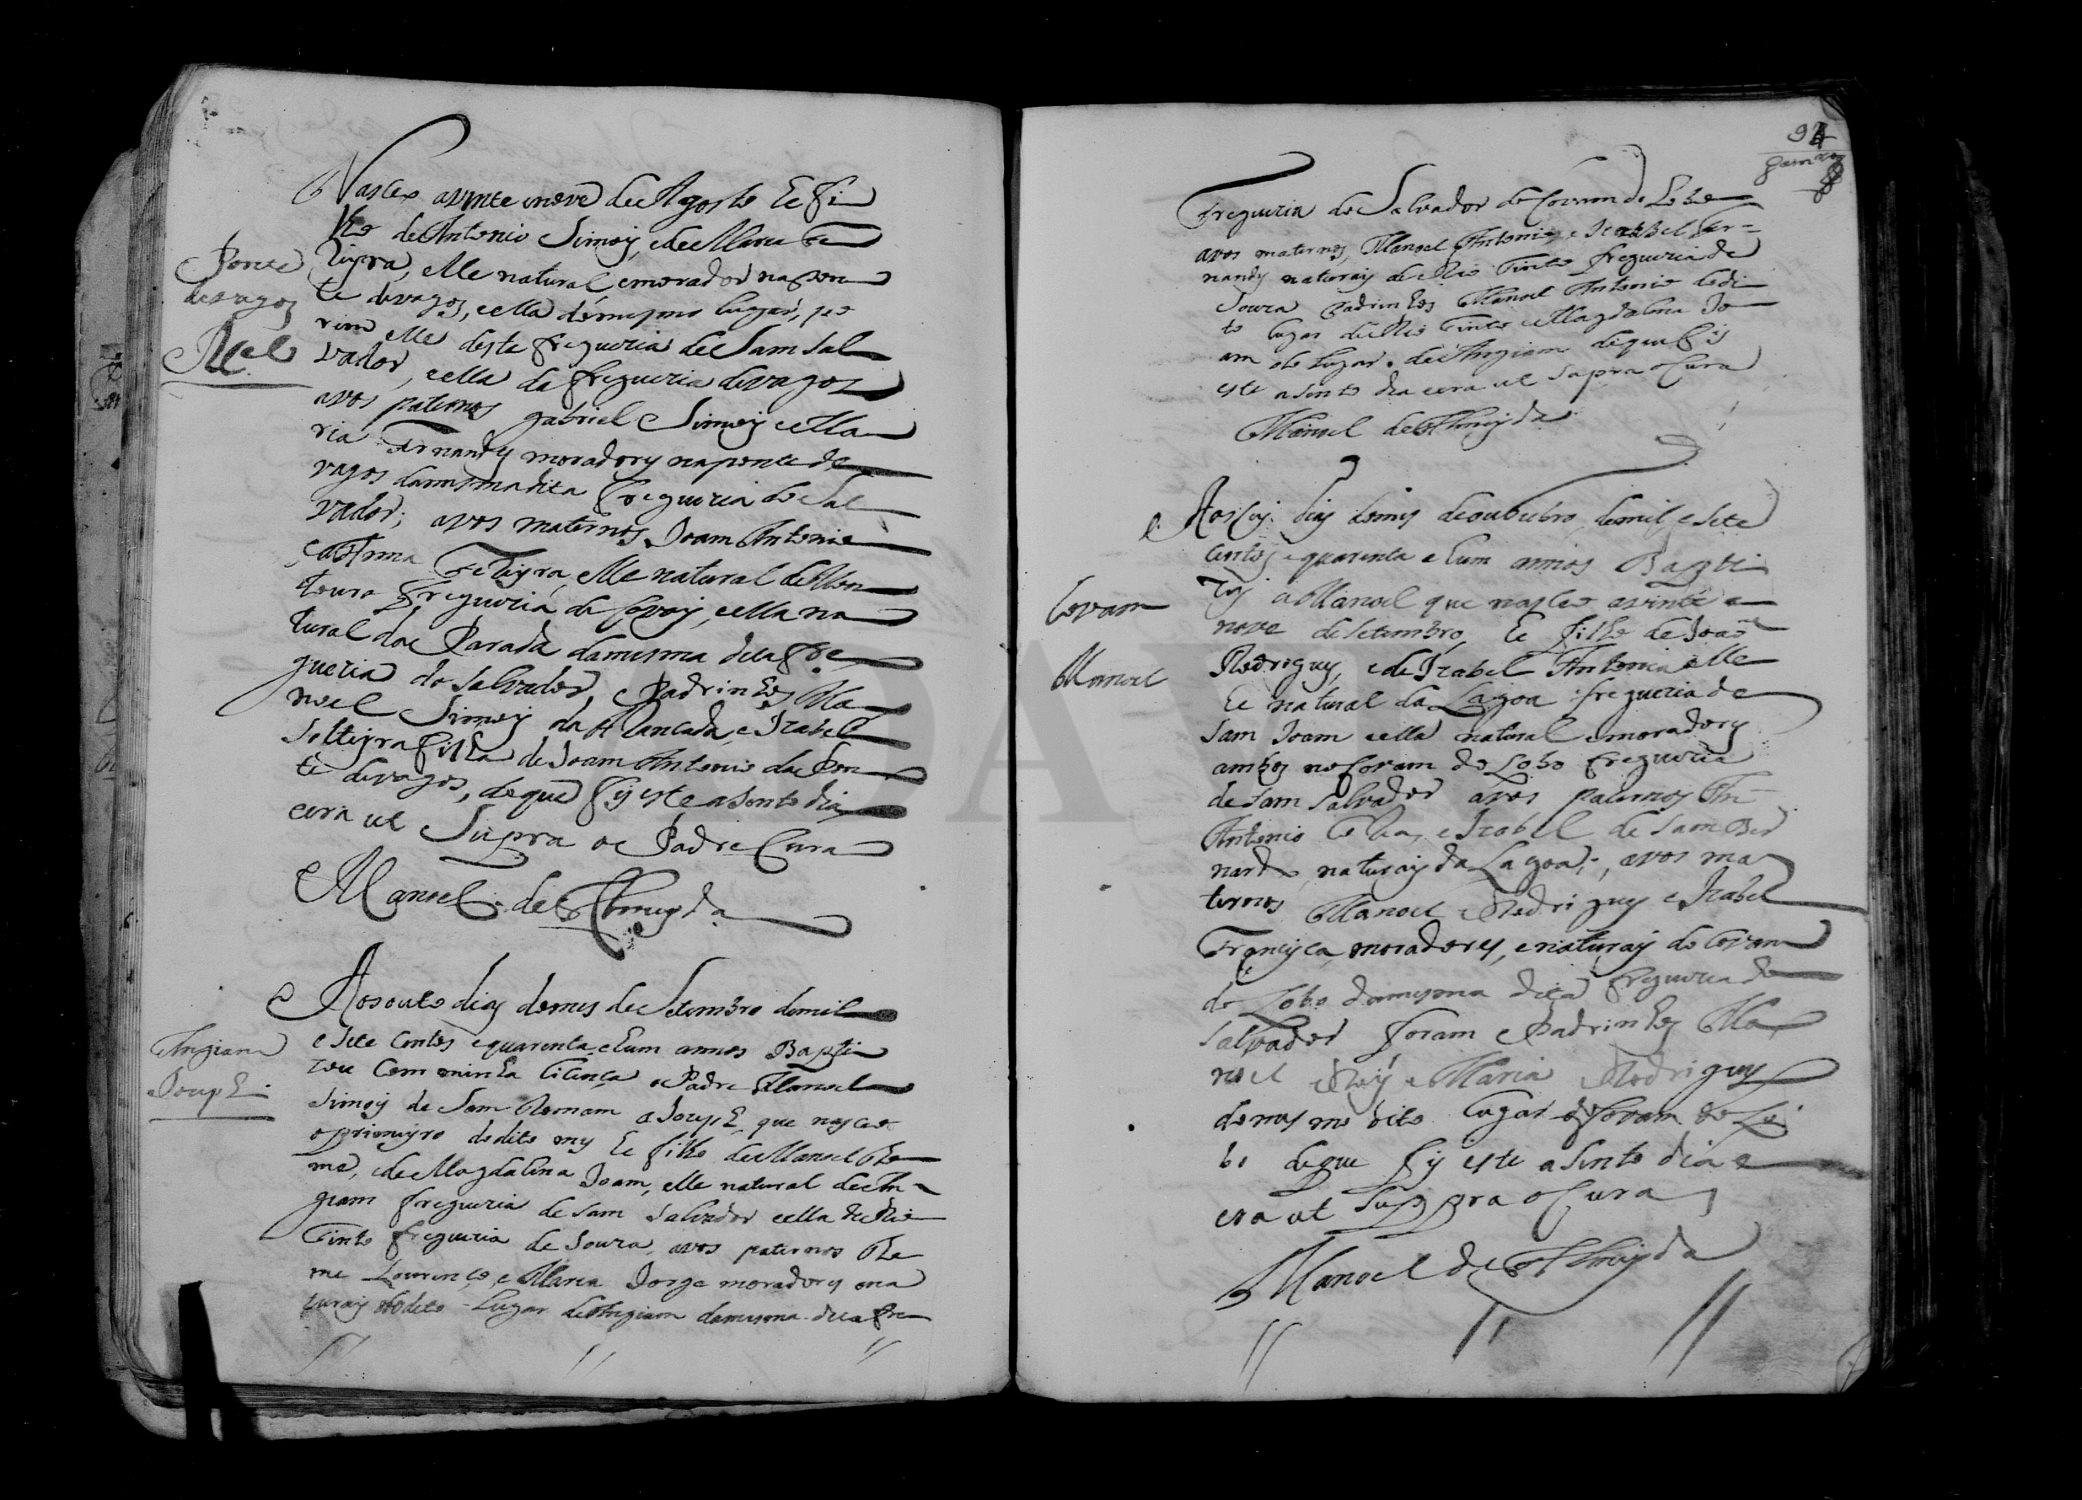 Nasceo a vinte e nove de Agosto he fi
lho de Antonio Simoiz, e de Maria Fe
Ponte
de vagos
Mel
ligra, elle natural e morador na pon
te de vagos, e ella do mesmo lugar, po
rem elle desta freguezia de Sam Sal
vador, e ella da freguezia de vagos
avos paternos gabriel Simoiz e Ma
ria Fernandez moradores na ponte de
vagos da mesma dita freguezia de Sal
vador; avos maternos Joam Antonio
e Feligra, elle natural de Mon
touro freguezia da Covois, e ella na
tural da Parada da mesma dita fre
guezia do Salvador, e Padrinhos Ma
noel Simoiz da e Izabel
solteyra filha de Joam Antonio da Pon
te de vagos, de que fiz este asento dia
e era ut Supra o Padre Cura
Manoel de Almeyda
Angiam
Joseph
Aos outo dias do mes de Setembro de mil
e sete centos e quarenta e hum annos Bapti
zou com minha licença o Padre Manoel
Simoiz de Sam Romam a Joseph que nasceo
o primeyro do dito mes he filho de Manoel Tho
me, e de Magdalena Joam, elle natural de An
giam freguezia de Sam Salvador e ella de Rio
Tinto freguezia de Souza, avos paternos Tho
me Lourenço, e Maria Jorge moradores e na
turais do dito Lugar de Angiam da mesma dita fre
92
Freguezia de Salvador de Covam do Lobo
avos maternos, Manoel Antonio, e Izabel Fer
nandez naturais de Rio Tinto freguezia de
Souza Padrinhos Manoel Antonio do di
to lugar de Rio Tinto e Magdalena Jo
am do lugar de Angiam de que fis
este asento dia e era ut Supra o Cura
Manoel de Almeyda
Aos seis dias do mes de outubro de mil e sete
centos e quarenta e hum annos Bapti
Covam
Manoel
zei a Manoel que nasceo a vinte e
nove de Setembro, he filho de Joaõ
Rodriguez, e de Izabel Antonia elle
he natural da Lagoa freguezia de
Sam Joam e ella natural e moradores
ambos no Covam do Lobo freguezia
de Sam Salvador avos paternos
Antonio e Izabel de Sam Ber
nardo naturais da Lagoa; avos ma
ternos Manoel Rodriguez e Izabel
Francisca, moradores, e naturais do Covam
do Lobo da mesma dita freguezia do
Salvador foram Padrinhos Ma
noel e Maria Rodriguez
do mesmo dito lugar do Covam do Lo
bo de que fis este asento dia e
era ut Suppra o Cura
Manoel de Almeyda